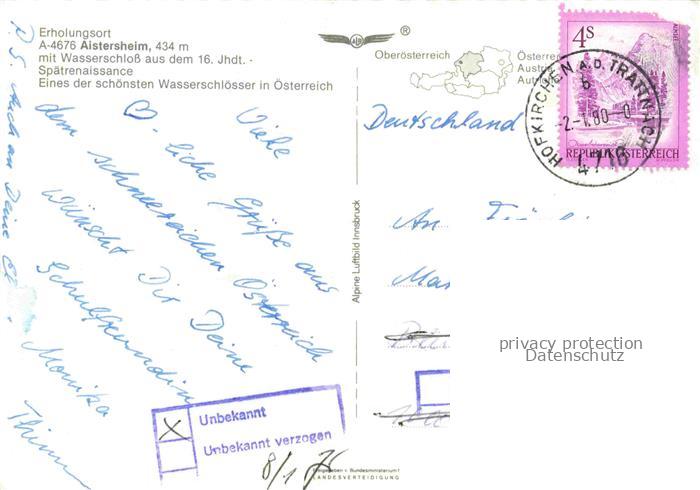 Erholungsort
A-4676 Aistersheim, 434 m
mit Wasserschloß aus dem 16. Jhdt. -
Spätrenaissance
Eines der schönsten Wasserschlösser in Österreich
®
Oberösterreich
Österre
Austria
Aut
4S
REPUBLIK ÖSTERREICH
HOFKIRCHEN A.D. TRATTNACH
b
-2.-1.80-0
4716
Deutschland
Viele
liche Grüße aus
dem schneereichen Österreich
Wünscht Dir Deine
Schulfreundin
Monika
P.S. Auch an Deine
Alpine Luftbild Innsbruck
An
privacy protection
Datenschutz
Unbekannt
Unbekannt verzogen
Freigegeben v. Bundesministerium f.
LANDESVERTEIDIGUNG